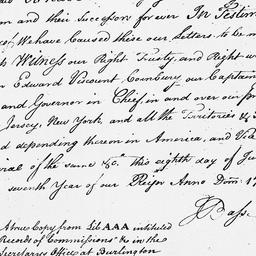 and their Successors for ever In Testim
We have Caused these our Letters to be m
Witness our Right Trusty, and Right w
Edward Viscount Cornbury our Captain
and Governor in Chief in and over our
Jersey, New York, and all the Territories &
depending thereon in America, and Vice
of the same &c. this eighth day of Ju
seventh Year of our Reign Anno Dom: 1
J Bass
A true Copy from Lib AAA intituled
Records of Commissions &c in the
Secretarys Office at Burlington